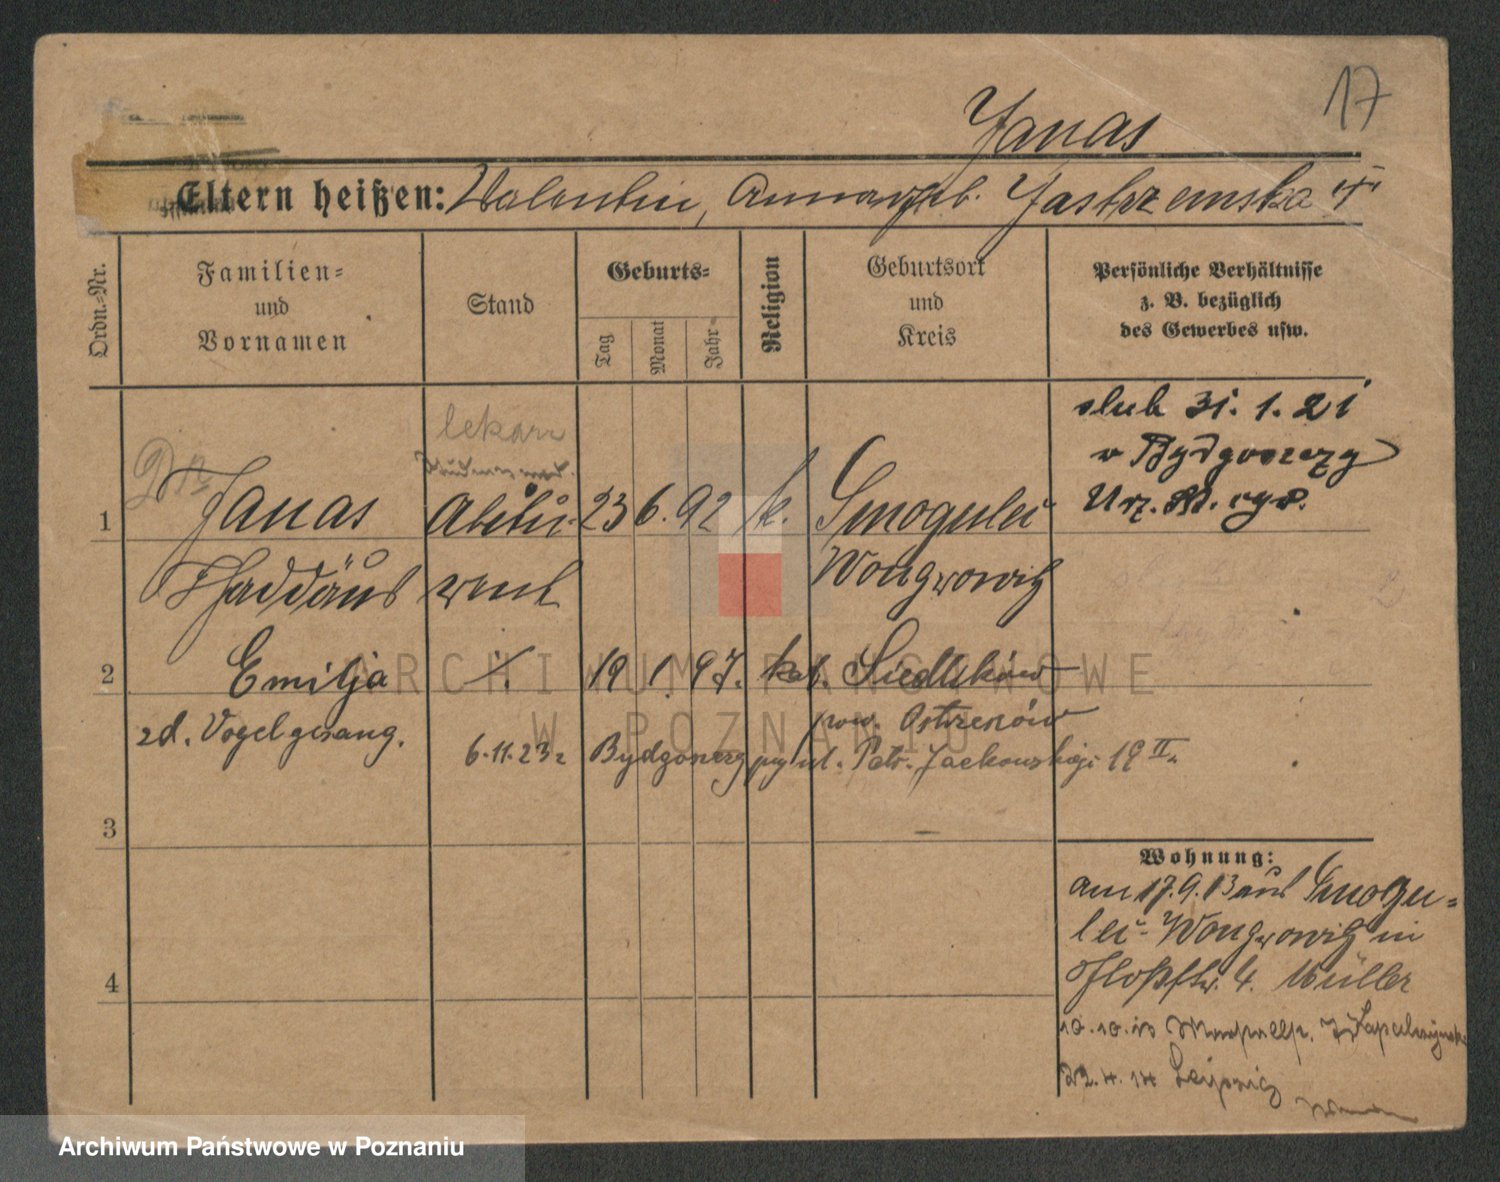 17
Janas
Eltern heißen: Valentin, Anna geb. Jastrzemska
Ordn.-Nr.
Familien-
und
Vornamen
Stand
Geburts-
Tag
Monat
Jahr
Religion
Geburtsort
und
Kreis
Persönliche Verhältnisse
z. B. bezüglich
des Gewerbes usw.
ślub 31. 1. 21
w Bydgoszczy
Urz. St. cyw.
Dr
lekarz
1 Janas Abitu- 23 6. 92 k. Smogulei
Thaddäus rient Wongrowitz
2 Emilja ·/. 19 1. 97. kat. Siedlików
zd. Vogelgesang. pow. Ostrzeszów
6.11.23 Bydgoszcz przy ul. Patr. Jackowskiego 19 II
3
4
Wohnung:
am 17.9.13 aus Smogu-
lei-Wongrowitz in
4. Müller
10.10.13
22.4.14 Leipzig
ARCHIWUM PAŃSTWOWE
W POZNANIU
Archiwum Państwowe w Poznaniu